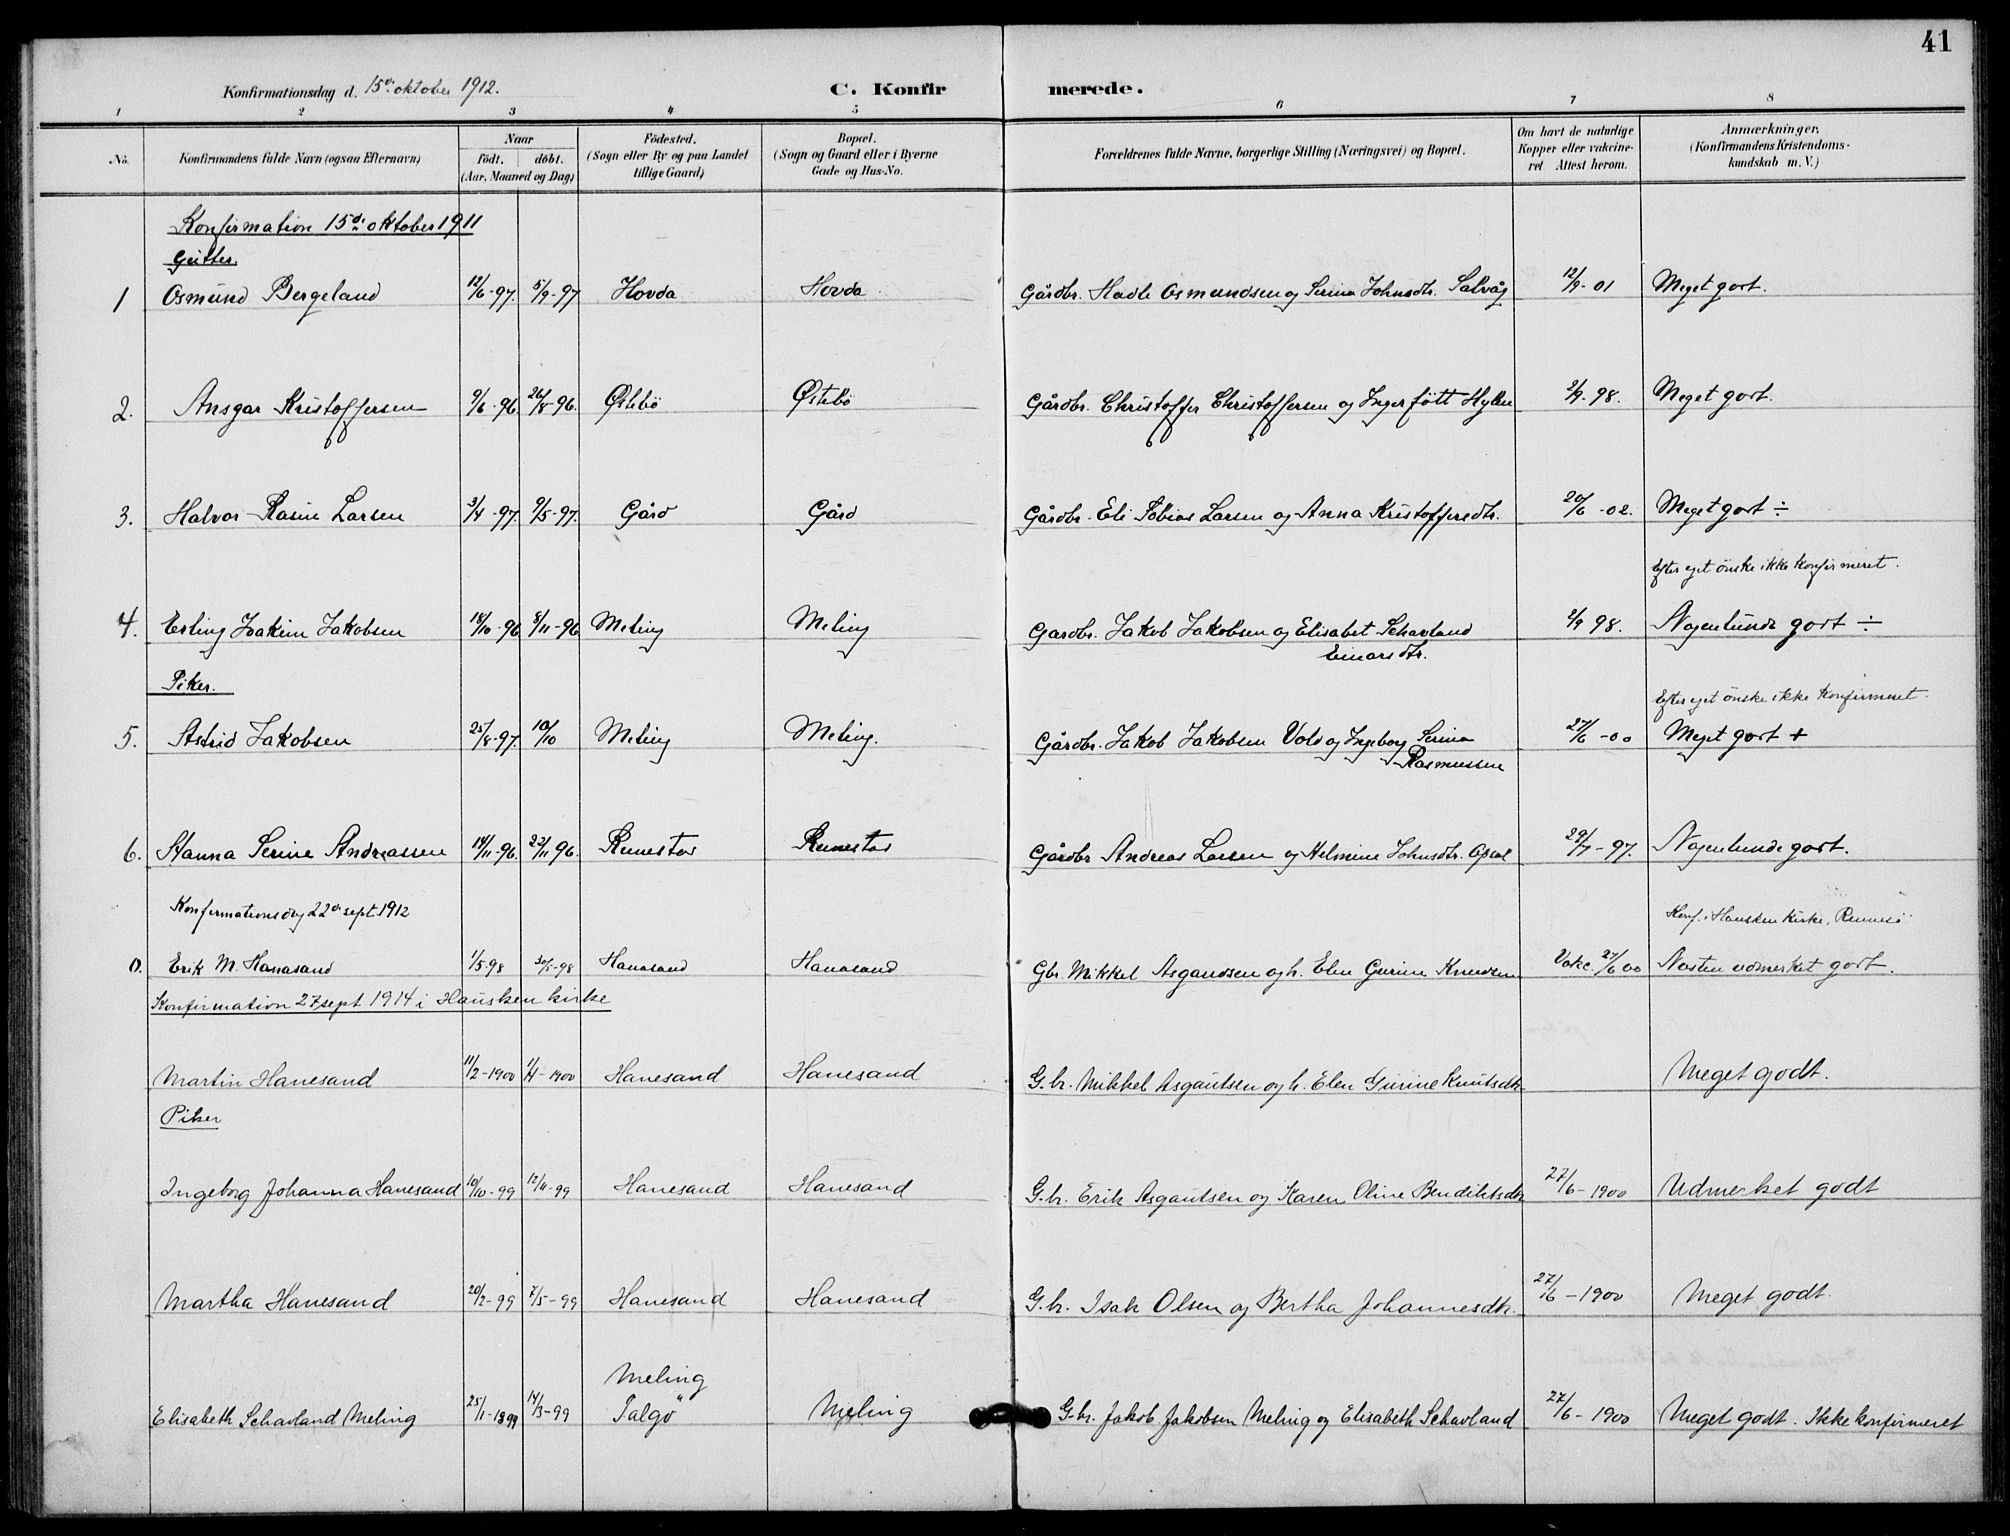 41
Konfirmationsdag d. 15de oktober 1912.
C. Konfirmerede.
1 2 3 4 5 6 7 8
No.
Konfirmandens fulde Navn (ogsaa Efternavn)
Naar
födt. döbt.
(Aar, Maaned og Dag)
Födested.
(Sogn eller By og paa Landet
tillige Gaard)
Bopæl.
(Sogn og Gaard eller i Byerne
Gade og Hus-No.
Forældrenes fulde Navne, borgerlige Stilling (Næringsvei) og Bopæl.
Om havt de naturlige
Kopper eller vakcine-
ret Attest herom.
Anmærkninger.
(Konfirmandens Kristendoms-
kundskab m. V.)
Konfirmation 15de oktober 1911
Gutter.
1 Osmund Bergeland 12/6-97. 5/9-97 Hovda Hovda Gårdbr. Hadle Osmundsen og Serina Johnsdtr. Salvåg 12/9-01 Meget gott.
2. Ansgar Kristoffersen 9/6-96 26/8-96. Østebö Østebö Gårdbr. Christoffer Christoffersen og Inger fött Hylen 2/9-98. Meget gott.
3. Halvor Rasin Larsen 3/4-97. 9/5-97. Gård Gård Gårdbr. Eli Tobias Larsen og Anna Kristoffersdtr. 20/6-02. Meget gott ÷
Efter eget önske ikke konfirmeret.
4. Erling Joakim Jakobsen 18/10-96 8/11-96 Meling Meling Gardbr. Jakob Jakobsen og Elisabet Schavland 2/9 98. Nogenlunde gott ÷
Einarsdtr.
Piker.
Efter eget önske ikke konfirmeret.
5. Astrid Jakobsen 25/8-97. 10/10 Meling Meling. Gårdbr. Jakob Jakobsen Vold og Ingeborg Serina 27/6-00 Meget gott +
Rasmussen
6. Hanna Serine Andreassen 14/11-96. 23/11 96. Runestad Runestad Gårdbr Andreas Larsen og Helmine Johnsdtr. Opsal 29/7-97. Nogenlunde gott.
Konfirmationsdag 22de sept. 1912
Konf. i Hausken kirke, Rennesö
0. Erik M. Hanasand 1/5 98 30/5-98 Hanasand Hanasand Gbr. Mikkel Asgautsen og h. Elen Gurine Knudsen Vakc. 27/6 00 Nesten udmerket gott.
Konfirmation 27 sept 1914 i Hausken kirke
Martin Hanesand 11/2-1900 1/4-1900 Hanesand Hanesand G.br. Mikkel Asgautsen og h. Elen Gurine Knutsdtr. Meget godt.
Piker
Ingeborg Johanna Hanesand 10/10-99 12/11-99 Hanesand Hanesand G.br. Erik Asgautsen og Karen Oline Bendiktsdtr 27/6-1900 Udmerket godt
Martha Hanesand 20/2-99 7/5-99 Hanesand Hanesand G.br. Isak Olsen og Bertha Johannesdtr. 27/6-1900 Meget godt.
Meling
Elisabeth Schavland Meling 25/1-1899 14/3-99 Talgö Meling G.br. Jakob Jakobsen Meling og Elisabeth Schavland 27/6-1900 Meget godt. Ikke konfirmeret